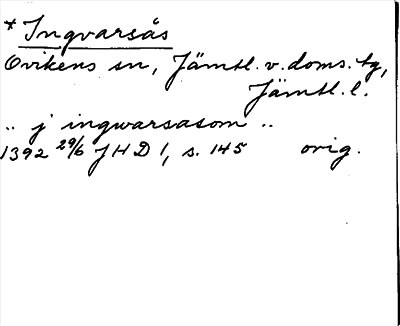 * Ingvarsås
Ovikens sn, Jämtl. v. doms. tg,
Jämtl. l.
.. j ingwarsasom ..
1392 29/6 JHD 1, s. 145 orig.